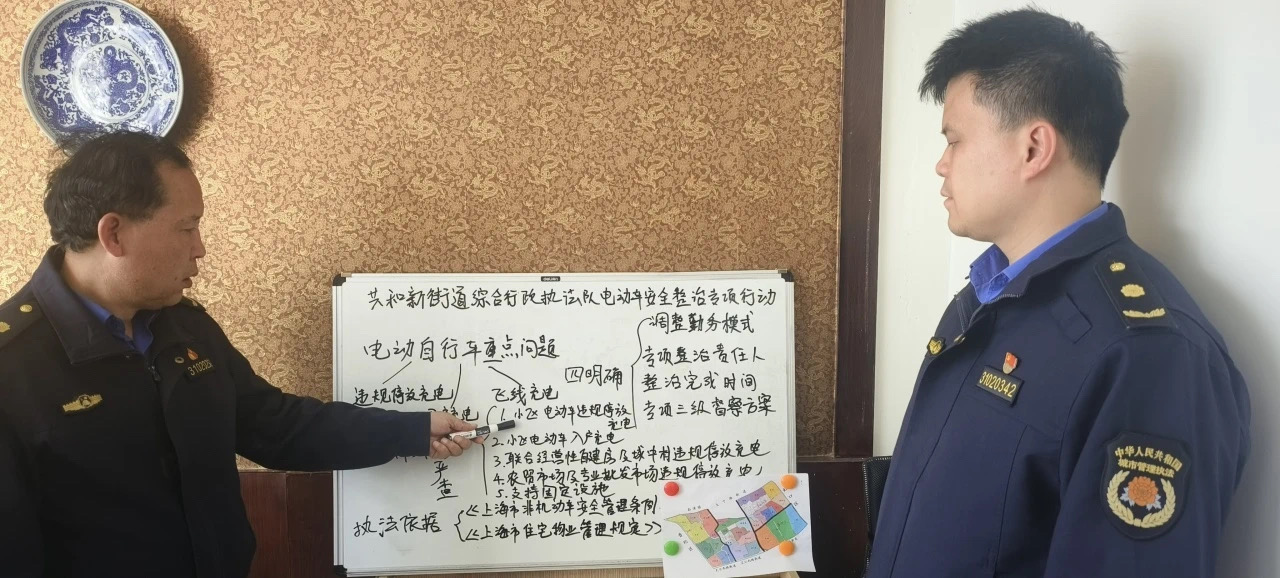 共和新街道综合行政执法队电动车安全整治专项行动
电动自行车重点问题
违规停放充电
飞线充电
四明确
调整勤务模式
专项整治责任人
整治完成时间
专项三级督察方案
1.小飞电动车违规停放
充电
2.小飞电动车入户充电
3.联合经营性自建房及城中村违规停放充电
4.农贸市场及专业批发市场违规停放充电
5.支持固定设施
查
执法依据
《上海市非机动车安全管理条例
《上海市住宅物业管理规定》
31020342
中华人民共和国
城市管理执法